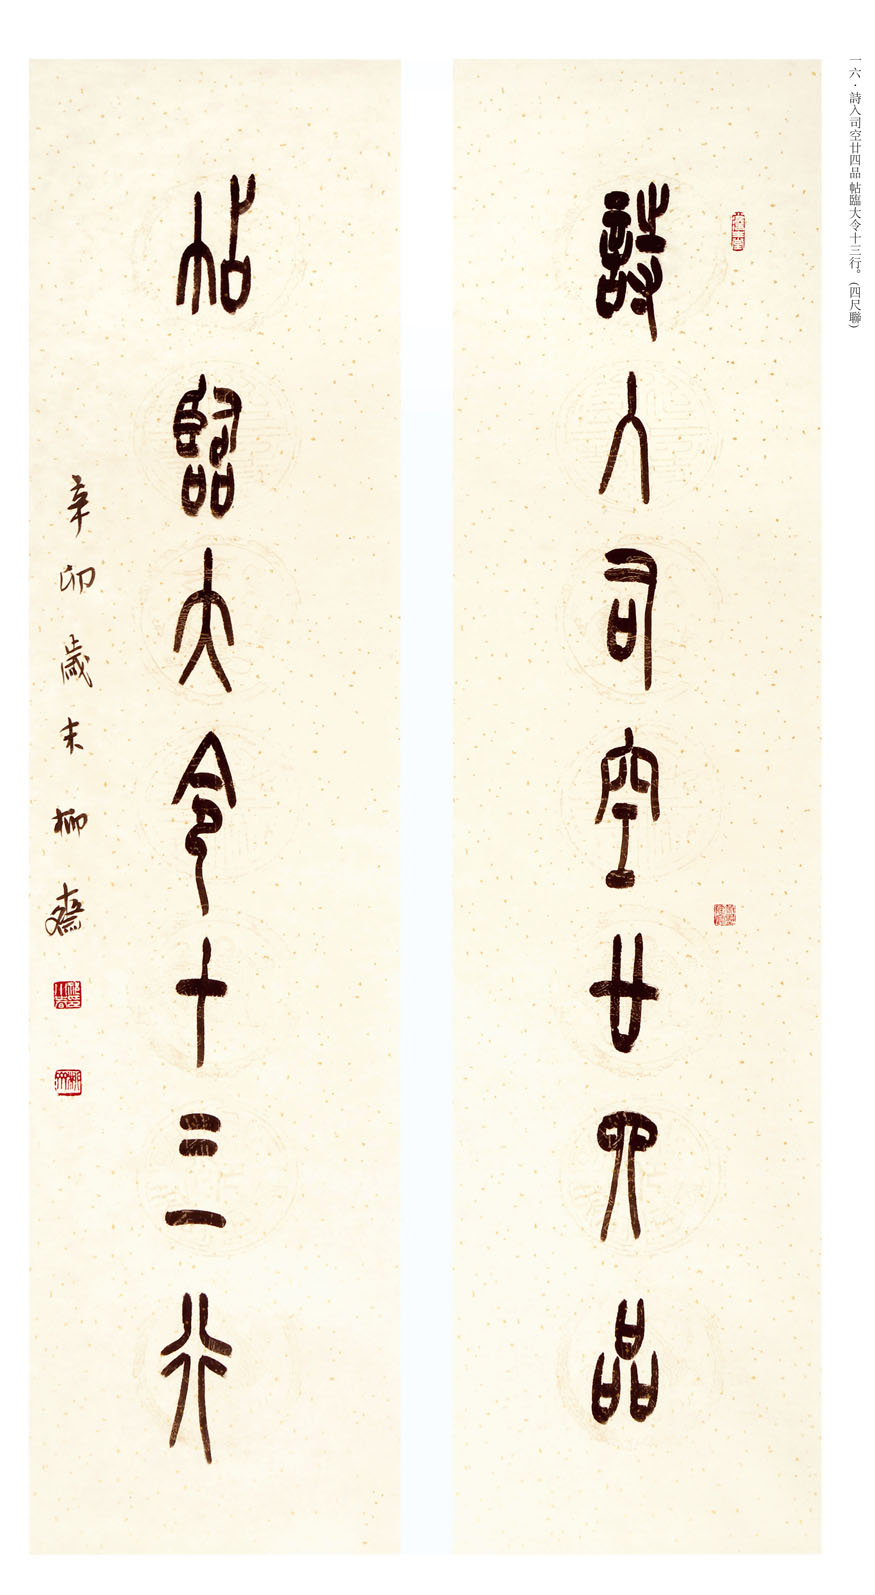 一六·詩入司空廿四品 帖臨大令十三行。（四尺聯）
詩入司空廿四品
帖臨大令十三行
辛卯歲末柳齋